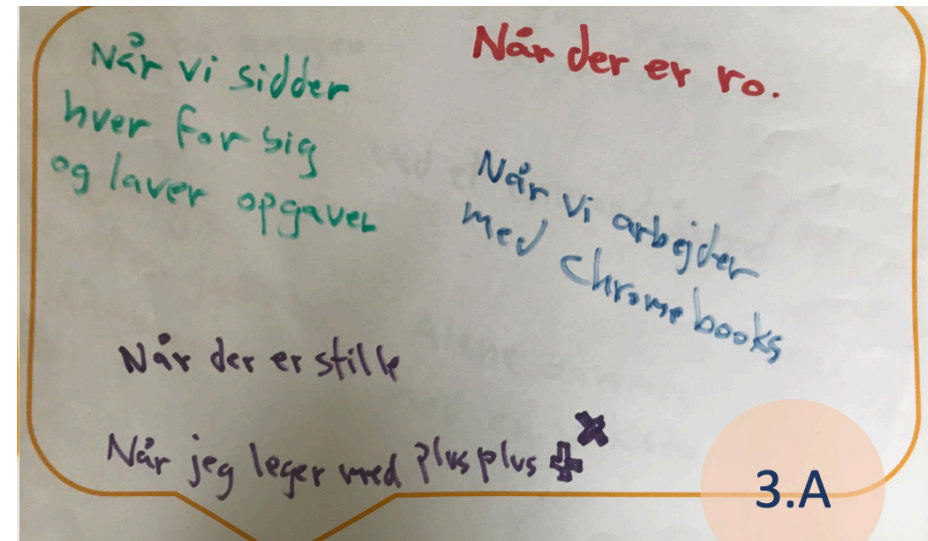 Når vi sidder
hver for sig
og laver opgaver
Når der er ro.
Når vi arbejder
med Chromebooks
Når der er stille
Når jeg leger med plusplus
3.A